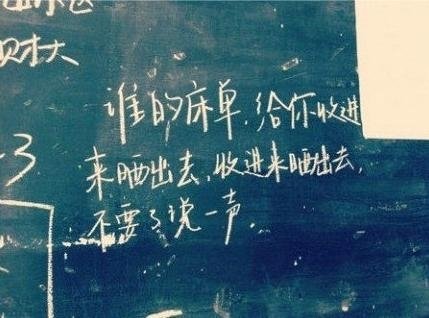 财大
3
谁的床单,给你收进
来晒出去,收进来晒出去,
不要了说一声.